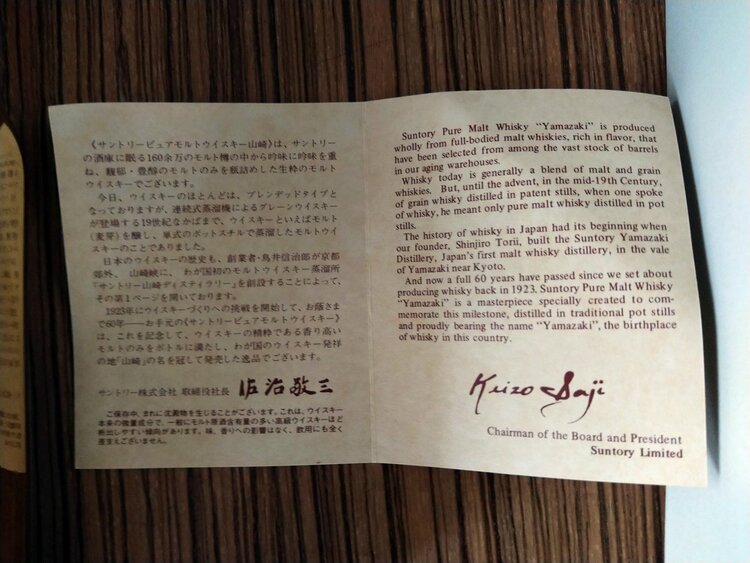 《サントリーピュアモルトウイスキー山崎》は、サントリー
の酒庫に眠る160余万のモルト樽の中から吟味に吟味を重
ね、馥郁・豊醇のモルトのみを瓶詰めした生粋のモルト
ウイスキーでございます。
今日、ウイスキーのほとんどは、ブレンデッドタイプと
なっておりますが、連続式蒸溜機によるグレーンウイスキー
が登場する19世紀なかばまで、ウイスキーといえばモルト
(麦芽)を醸し、単式のポットスチルで蒸溜したモルトウイ
スキーのことでありました。
日本のウイスキーの歴史も、創業者・鳥井信治郎が京都
郊外、山崎峡に、わが国初のモルトウイスキー蒸溜所
「サントリー山崎ディスティラリー」を創設することによって、
その第1ページを開いております。
1923年にウイスキーづくりへの挑戦を開始して、お蔭さま
で60年——お手元の《サントリーピュアモルトウイスキー》
は、これを記念して、ウイスキーの精粋である香り高い
モルトのみをボトルに満たし、わが国のウイスキー発祥
の地「山崎」の名を冠して発売した逸品でございます。
サントリー株式会社 取締役社長 佐治敬三
ご保存中、まれに沈澱物を生じることがございます。これは、ウイスキー
本来の微量成分で、一般にモルト原酒含有量の多い高級ウイスキーほど
析出しやすい傾向があります。味、香りへの影響はなく、飲用にも全く
差支えございません。
Suntory Pure Malt Whisky "Yamazaki" is produced
wholly from full-bodied malt whiskies, rich in flavor, that
have been selected from among the vast stock of barrels
in our aging warehouses.
Whisky today is generally a blend of malt and grain
whiskies. But, until the advent, in the mid-19th Century,
of grain whisky distilled in patent stills, when one spoke
of whisky, he meant only pure malt whisky distilled in pot
stills.
The history of whisky in Japan had its beginning when
our founder, Shinjiro Torii, built the Suntory Yamazaki
Distillery, Japan's first malt whisky distillery, in the vale
of Yamazaki near Kyoto.
And now a full 60 years have passed since we set about
producing whisky back in 1923. Suntory Pure Malt Whisky
"Yamazaki" is a masterpiece specially created to com-
memorate this milestone, distilled in traditional pot stills
and proudly bearing the name "Yamazaki", the birthplace
of whisky in this country.
Keizo Saji
Chairman of the Board and President
Suntory Limited